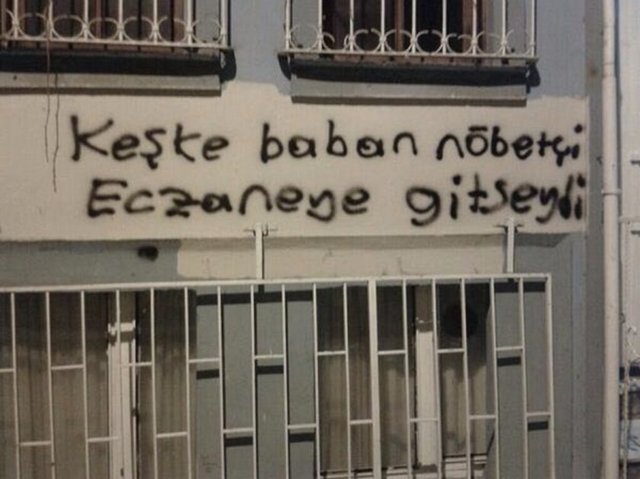 Keşke baban nöbetçi
Eczaneye gitseydi